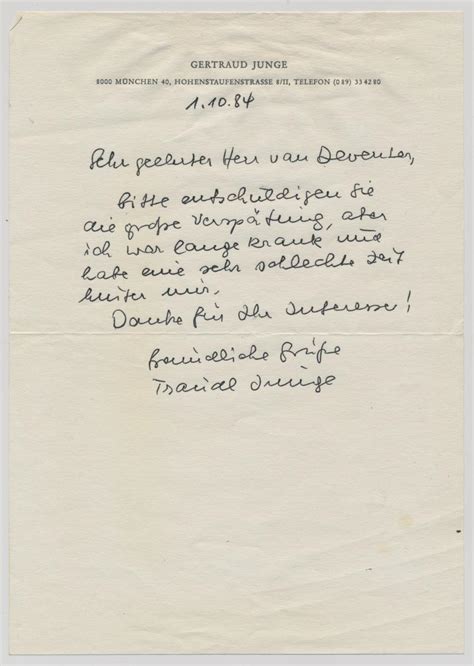 GERTRAUD JUNGE
8000 MÜNCHEN 40, HOHENSTAUFENSTRASSE 8/II, TELEFON (089) 33 42 80
1.10.84
Sehr geehrter Herr van Deventer,
bitte entschuldigen Sie
die große Verspätung, aber
ich war lange krank und
habe eine sehr schlechte Zeit
hinter mir.
Danke für Ihr Interesse!
freundliche Grüße
Traudl Junge